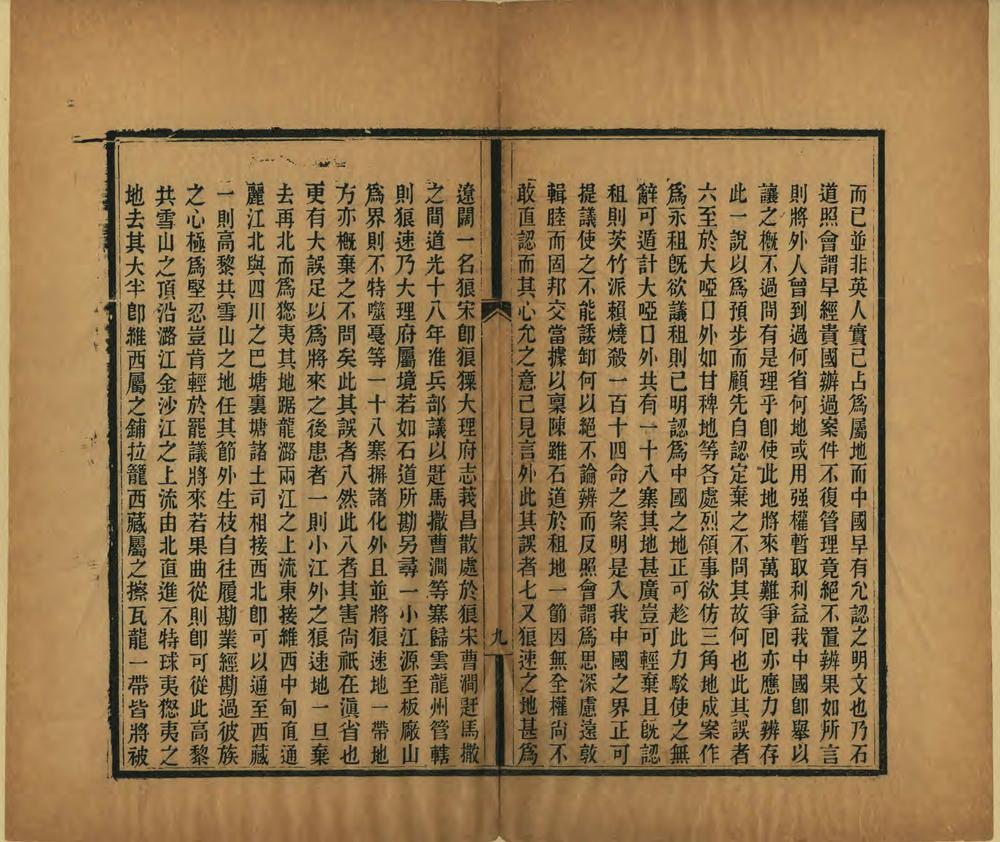 而已並非英人實已占爲屬地而中國早有允認之明文也乃石
道照會謂早經貴國辦過案件不復管理竟絕不置辨果如所言
則將外人曾到過何省何地或用强權暫取利益我中國卽舉以
讓之概不過問有是理乎卽使此地將來萬難爭回亦應力辨存
此一說以爲預步而顧先自認定棄之不問其故何也此其誤者
六至於大啞口外如甘稗地等各處烈領事欲仿三角地成案作
爲永租旣欲議租則已明認爲中國之地正可趁此力駁使之無
辭可遁計大啞口外共有一十八寨其地甚廣豈可輕棄且旣認
租則茨竹派賴燒殺一百十四命之案明是入我中國之界正可
提議使之不能諉卸何以絕不論辨而反照會謂爲思深慮遠敦
輯睦而固邦交當據以稟陳雖石道於租地一節因無全權尙不
敢直認而其心允之意已見言外此其誤者七又狼速之地甚爲
九
遼闊一名狼宋卽狼猓大理府志莪昌散處於狼宋曹澗赶馬撒
之間道光十八年准兵部議以赶馬撒曹澗等寨歸雲龍州管轄
則狼速乃大理府屬境若如石道所勘另尋一小江源至板廠山
爲界則不特噬戞等一十八寨摒諸化外且並將狼速地一帶地
方亦概棄之不問矣此其誤者八然此八者其害尙祇在滇省也
更有大誤足以爲將來之後患者一則小江外之狼速地一旦棄
去再北而爲㺐夷其地踞龍潞兩江之上流東接維西中甸直通
麗江北與四川之巴塘裏塘諸土司相接西北卽可以通至西藏
一則高黎共雪山之地任其節外生枝自往履勘業經勘過彼族
之心極爲堅忍豈肯輕於罷議將來若果曲從則卽可從此高黎
共雪山之頂沿潞江金沙江之上流由北直進不特球夷㺐夷之
地去其大半卽維西屬之鋪拉籠西藏屬之擦瓦龍一帶皆將被